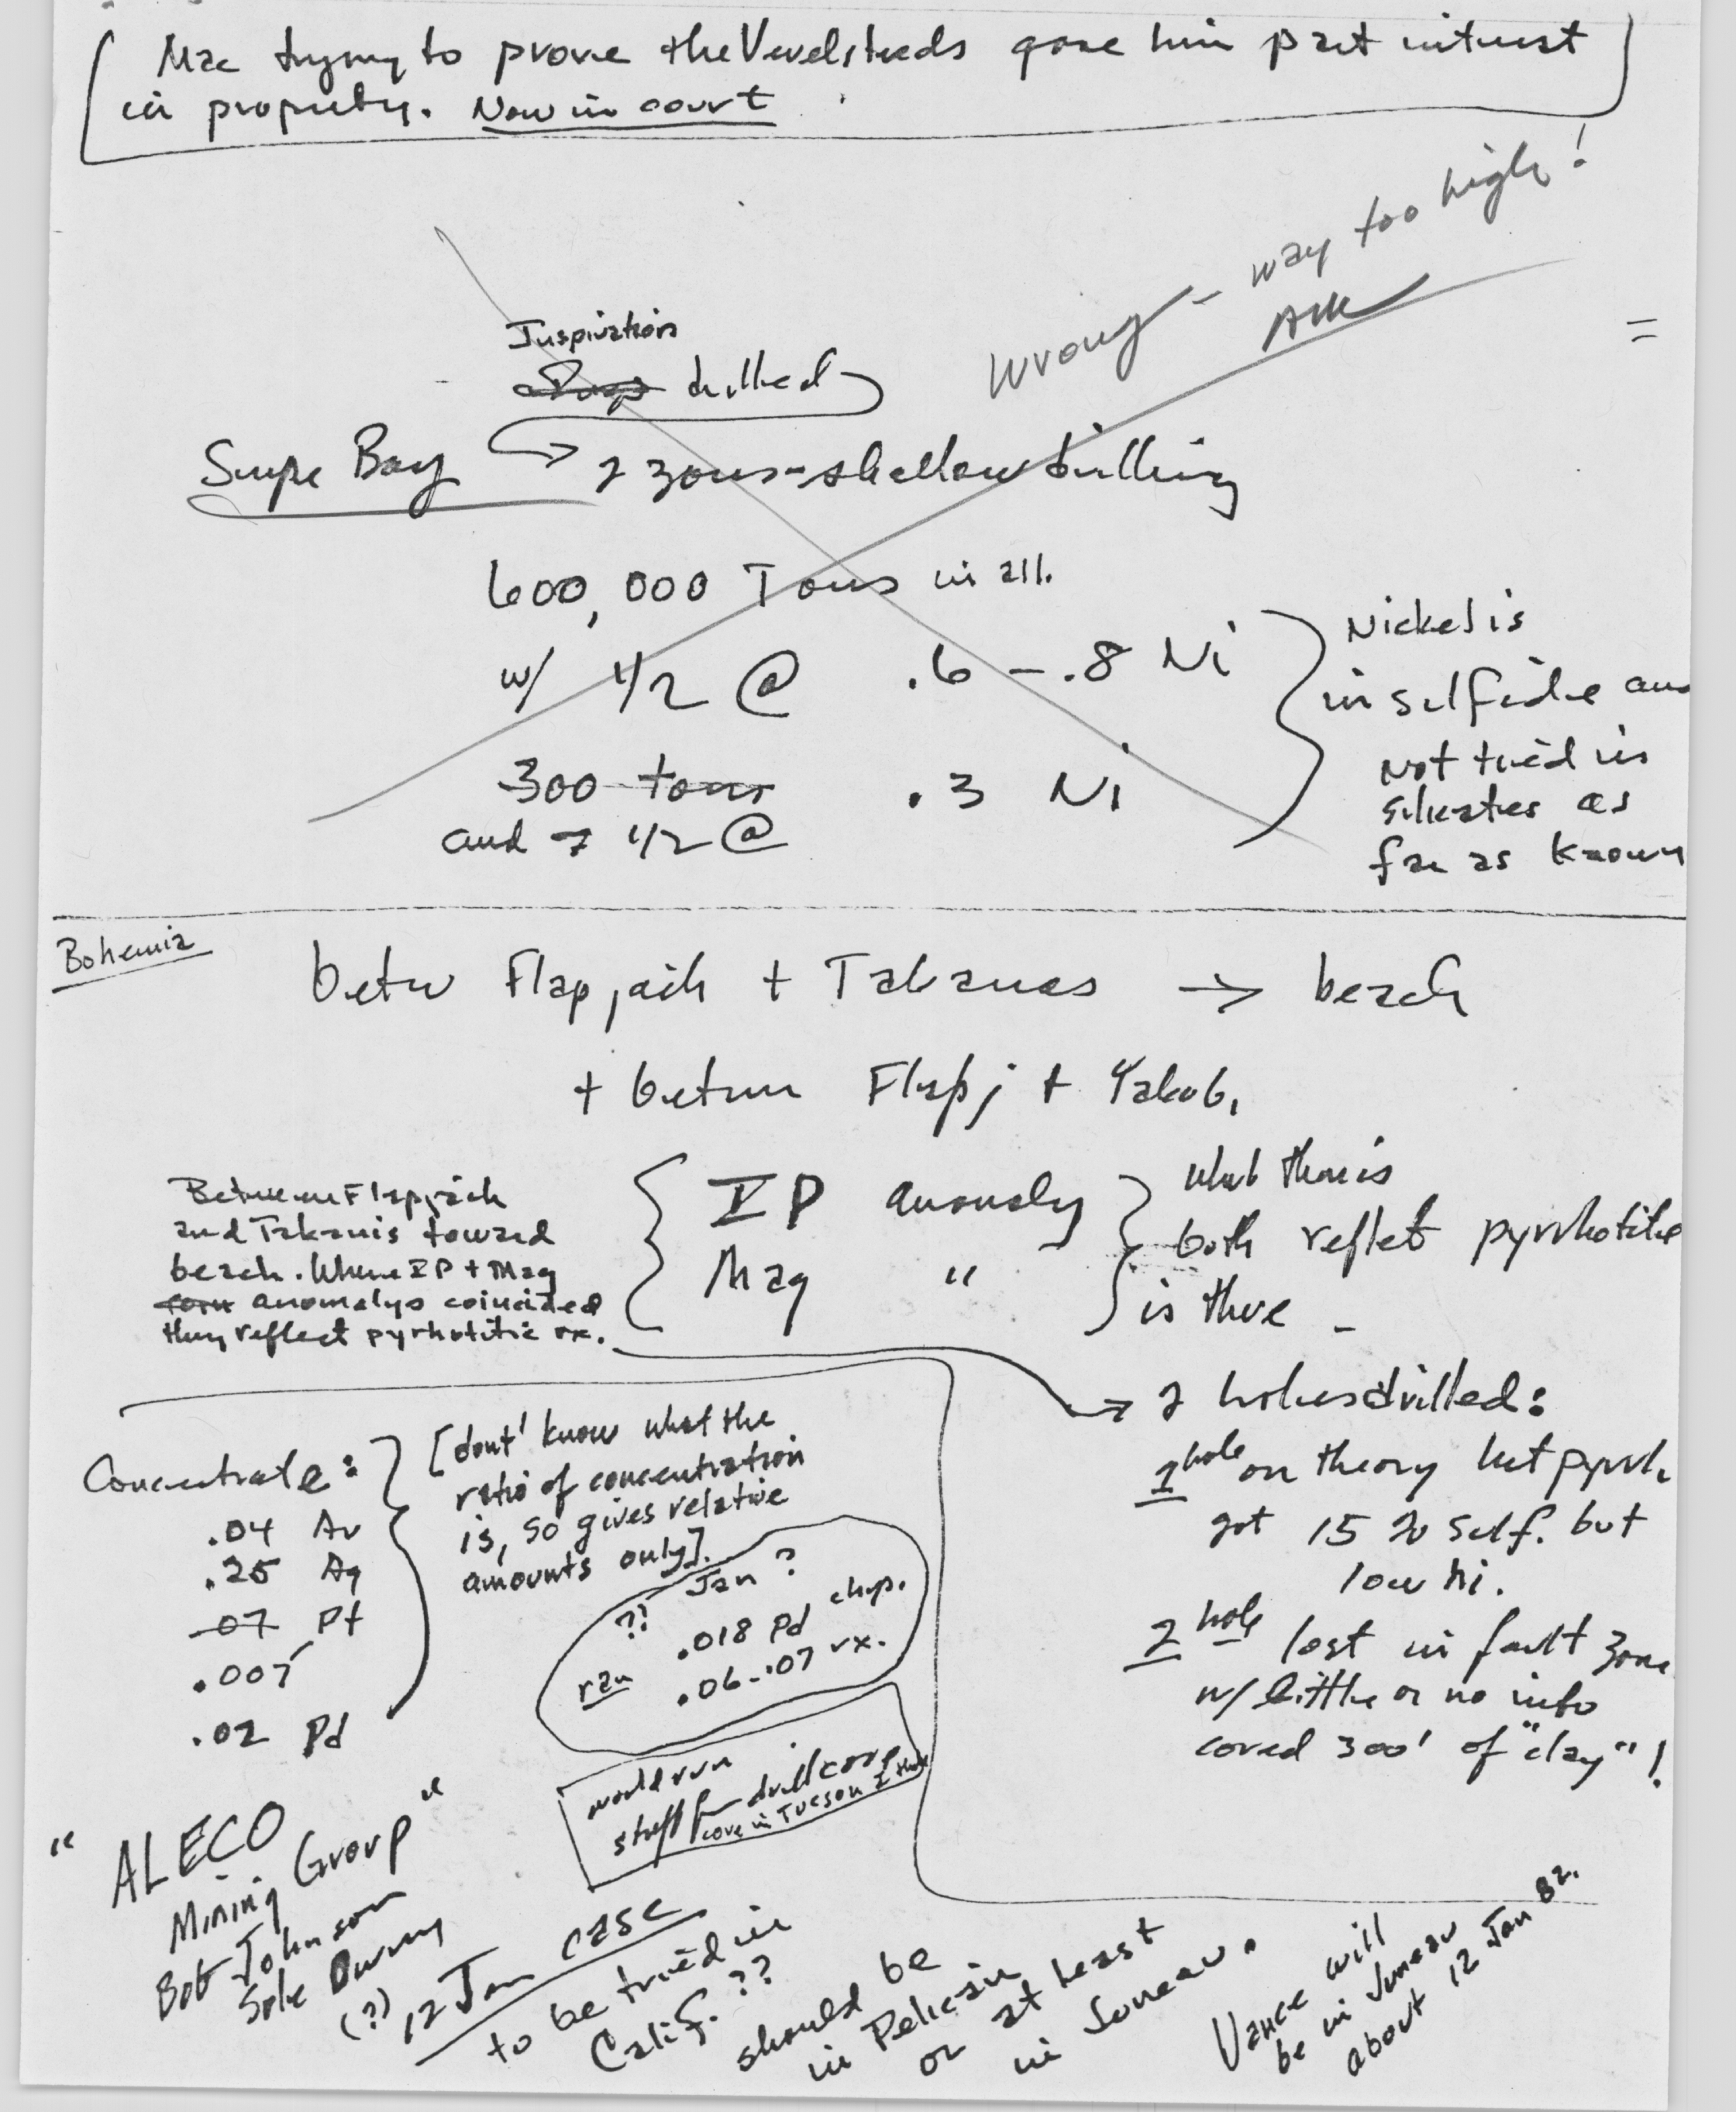 Mac trying to prove the Vevelsteds gave him part interest
in property. Now in court
Wrong - way too high!
Inspiration
drilled
Supe Bay → 2 zones - shallow drilling
600,000 Tons in all.
w/ 1/2 @ .6 - .8 Ni
300 tons .3 Ni
and 1/2 @
Nickel is
in sulfide and
not tied in
silicates as
far as known
Bohemia
betw Flapjack + Takanes → beach
+ betwn Flapj + Yakob,
Between Flapjack
and Takanis toward
beach. Where IP + Mag
anomalys coincided
they reflect pyrhotitic rx.
IP anomaly
Mag "
what there is
both reflet pyrrhotite
is there -
→ 2 holes drilled:
1 hole on theory hit pyrrh
got 15 % sulf. but
low Ni.
2 hole lost in fault zone
w/ little or no info
cored 300' of "clay"!
Concentrate:
.04 Au
.25 Ag
.07 Pt
.005
.02 Pd
[dont' know what the
ratio of concentration
is, so gives relative
amounts only].
Jan ?
??
.018 Pd chip.
ran .06-.07 rx.
would run
stuff for drill core
core in Tucson I think
"ALECO
Mining Group"
Bob Johnson
Sole Owner
(?)
12 Jan case
to be tried in
Calif. ??
should be
in Pelican
or at least
in Juneau.
Vance will
be in Juneau
about 12 Jan 82.